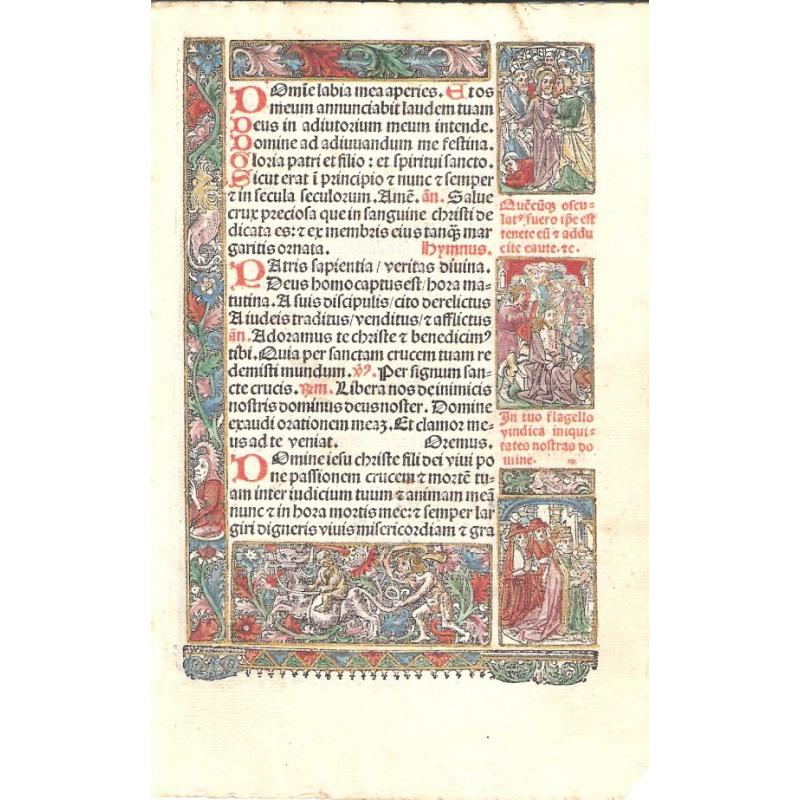 Domīe labia mea aperies. Et os
meum annunciabit laudem tuam
Deus in adiutorium meum intende.
Domine ad adiuuandum me festina.
Gloria patri et filio : et spiritui sancto.
Sicut erat ī principio ⁊ nunc ⁊ semper
⁊ in secula seculorum. Amē. añ. Salue
crux preciosa que in sanguine christi de
dicata es: ⁊ ex membris eius tanqȝ mar
garitis ornata. Hymnus.
PAtris sapientia/ veritas diuina.
Deus homo captus est/ hora ma-
tutina. A suis discipulis/ cito derelictus
A iudeis traditus/ venditus/ ⁊ afflictus
añ. Adoramus te christe ⁊ benedicimꝰ
tibi. Quia per sanctam crucem tuam re
demisti mundum. v̄ꝰ. Per signum san-
cte crucis. Libera nos de inimicis
nostris dominus deus noster. Domine
exaudi orationem meaȝ. Et clamor me-
us ad te veniat. Oremus.
DOmine iesu christe fili dei viui po
ne passionem crucem ⁊ mortē tu-
am inter iudicium tuum ⁊ animam meā
nunc ⁊ in hora mortis mee: ⁊ semper lar
giri digneris viuis misericordiam ⁊ gra
Quēcūqȝ oscu-
latꝰ fuero ip̄e est
tenete eū ⁊ addu
cite caute. ⁊c.
In tuo flagello
vindica iniqui-
tates nostras do
mine.